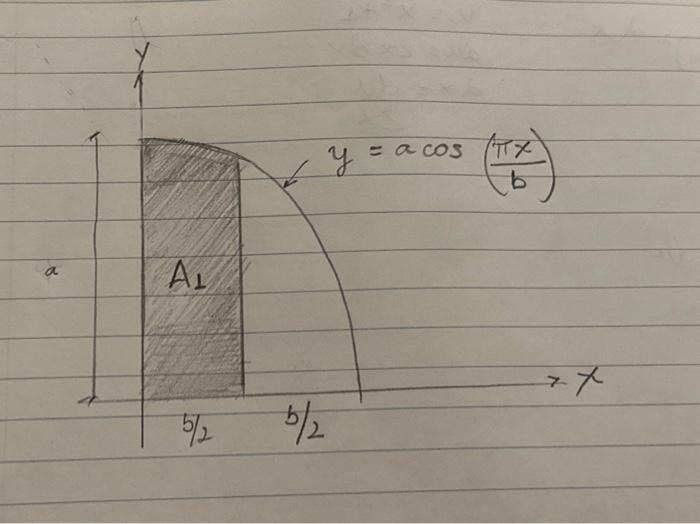 y
y = a cos (πx/b)
a
A1
b/2
b/2
x